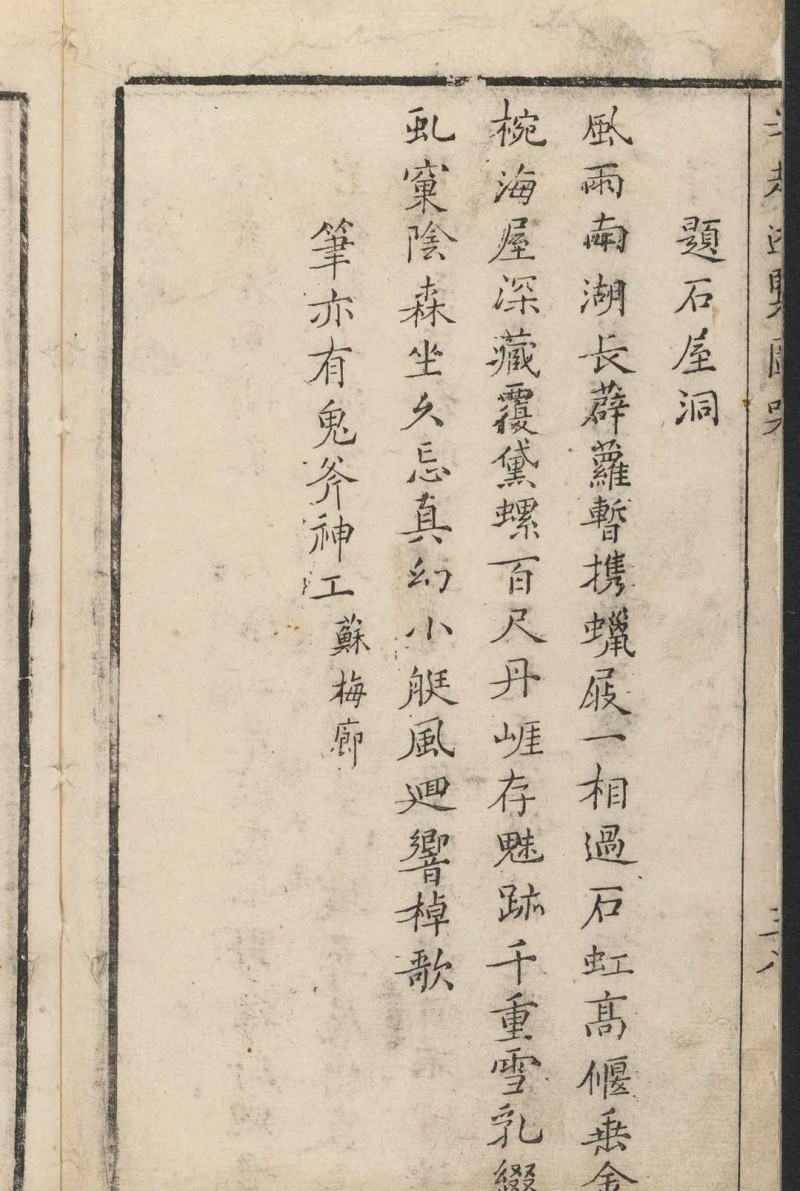 題石屋洞
風雨南湖長薜蘿暫携蠟屐一相過石虹髙偃垂金
椀海屋深藏覆黛螺百尺丹崕存魅跡千重雪乳綴
虬窠陰森坐久忘真幻小艇風迴響棹歌
筆亦有鬼斧神工蘇梅廊